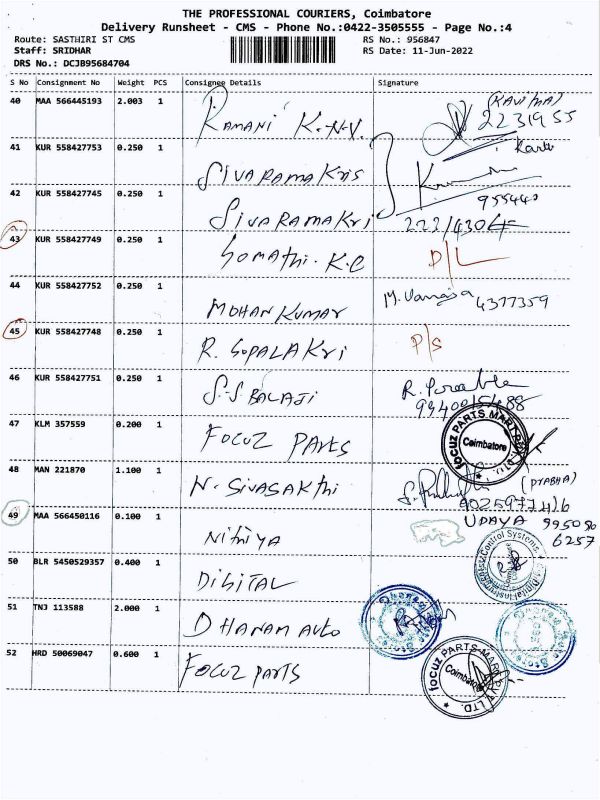 THE PROFESSIONAL COURIERS, Coimbatore
Delivery Runsheet - CMS - Phone No.:0422-3505555 - Page No.:4
Route: SASTHIRI ST CMS RS No.: 956847
Staff: SRIDHAR RS Date: 11-Jun-2022
DRS No.: DCJB95684704
S No Consignment No Weight PCS Consignee Details Signature
40 MAA 566445193 2.003 1 RAMANI K.N.V. (KAVITHA) 2231955
41 KUR 558427753 0.250 1 SIVARAMAKRIS
42 KUR 558427745 0.250 1 SIVARAMAKRI 223/4304
43 KUR 558427749 0.250 1 GOMATHI.K.C D/L
44 KUR 558427752 0.250 1 MOHAN KUMAR M. Vanaja 4377359
45 KUR 558427748 0.250 1 R. GOPALAKRI P/S
46 KUR 558427751 0.250 1 S.S.BALAJI
47 KLM 357559 0.200 1 FOCUZ PARTS FOCUZ PARTS MART Coimbatore
48 MAN 221870 1.100 1 N. SIVASAKTHI (PRABHA)
49 MAA 566450116 0.100 1 NITHIYA UDAYA 995080
6257
50 BLR 5450529357 0.400 1 DIGITAL Control Systems
51 TNJ 113588 2.000 1 DHANAM AUTO
52 HRD 50069047 0.600 1 FOCUZ PARTS FOCUZ PARTS-MART PVT. LTD. Coimbatore